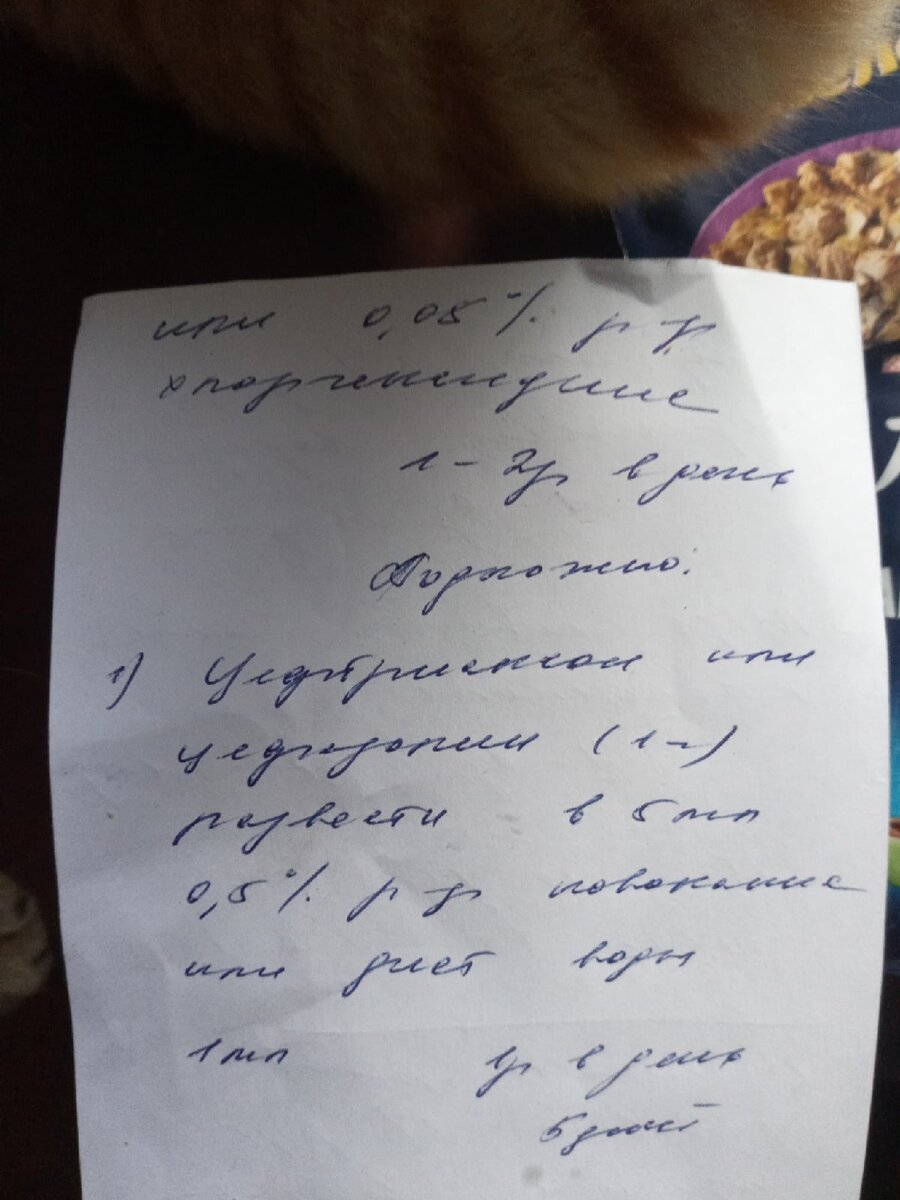 или 0,05% р-р
хлоргексидина
1-2р в день
Подкожно:
1) Цефтриаксон или
цефазолин (1г)
развести в 5мл
0,5% р-р новокаина
или дист воды
1мл 1р в день
5 дней